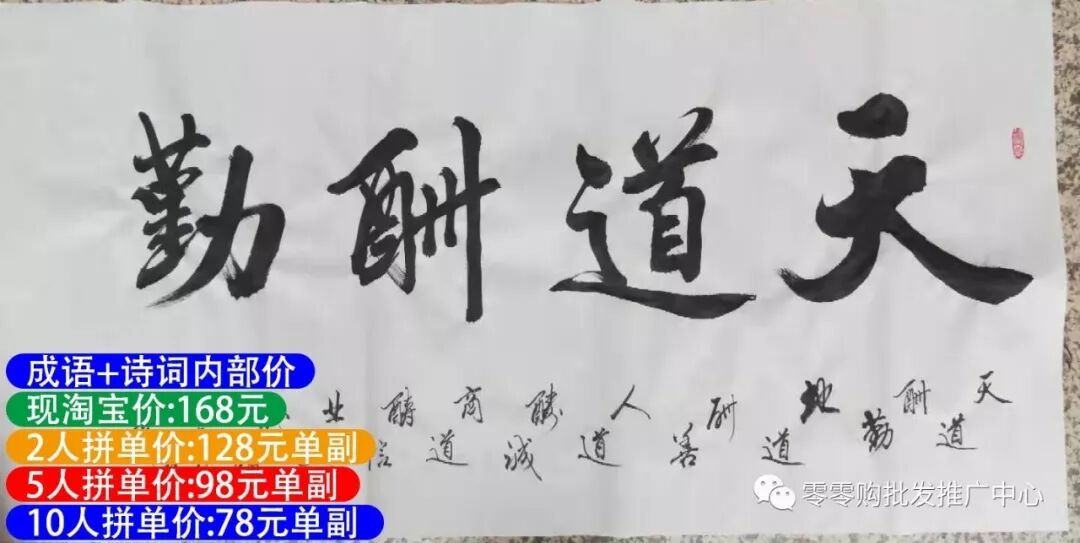 天道酬勤
天道酬勤地道酬善人道酬诚商道酬信业
成语+诗词内部价
现淘宝价:168元
2人拼单价:128元单副
5人拼单价:98元单副
10人拼单价:78元单副
零零购批发推广中心